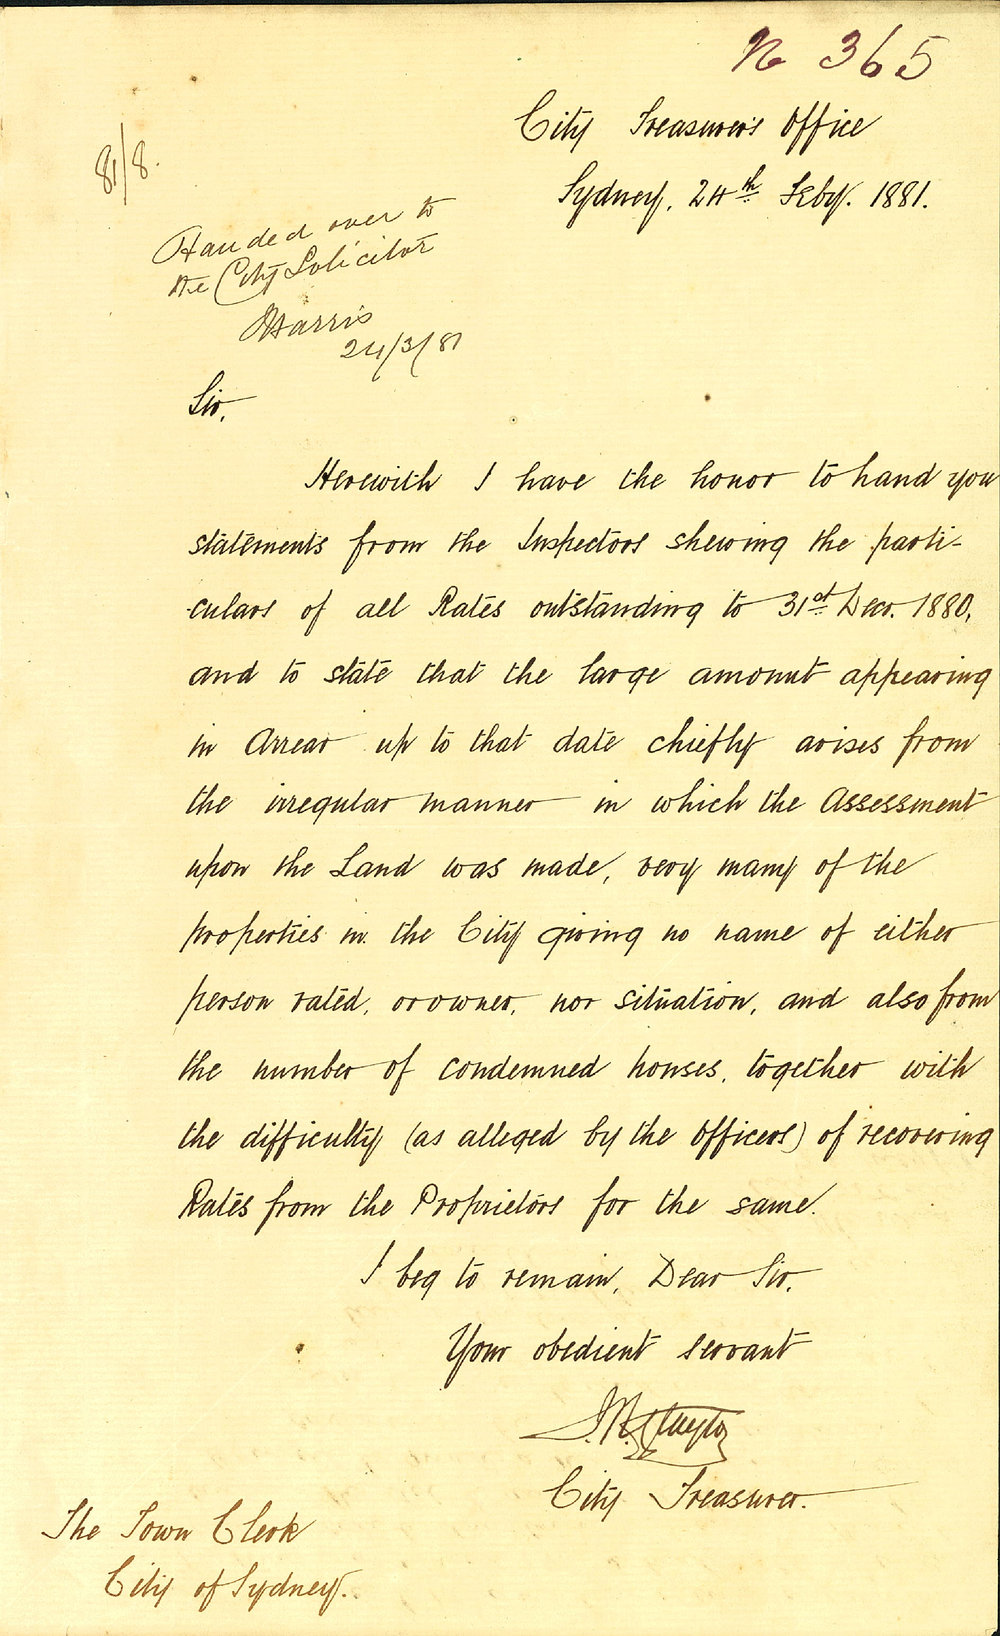 No 365
City Treasurer's Office
Sydney, 24th Feby. 1881.
81/8.
Handed over to
the City Solicitor
Harris
24/3/81
Sir,
Herewith I have the honor to hand you
statements from the Inspectors shewing the parti-
-culars of all Rates outstanding to 31st Decr. 1880,
and to state that the large amount appearing
in Arrear up to that date chiefly arises from
the irregular manner in which the Assessment
upon the Land was made, very many of the
properties in the City giving no name of either
person rated, or owner, nor situation, and also from
the number of condemned houses, together with
the difficulty (as alleged by the Officers) of recovering
Rates from the Proprietors for the same.
I beg to remain, Dear Sir,
Your obedient servant
City Treasurer.
The Town Clerk
City of Sydney.